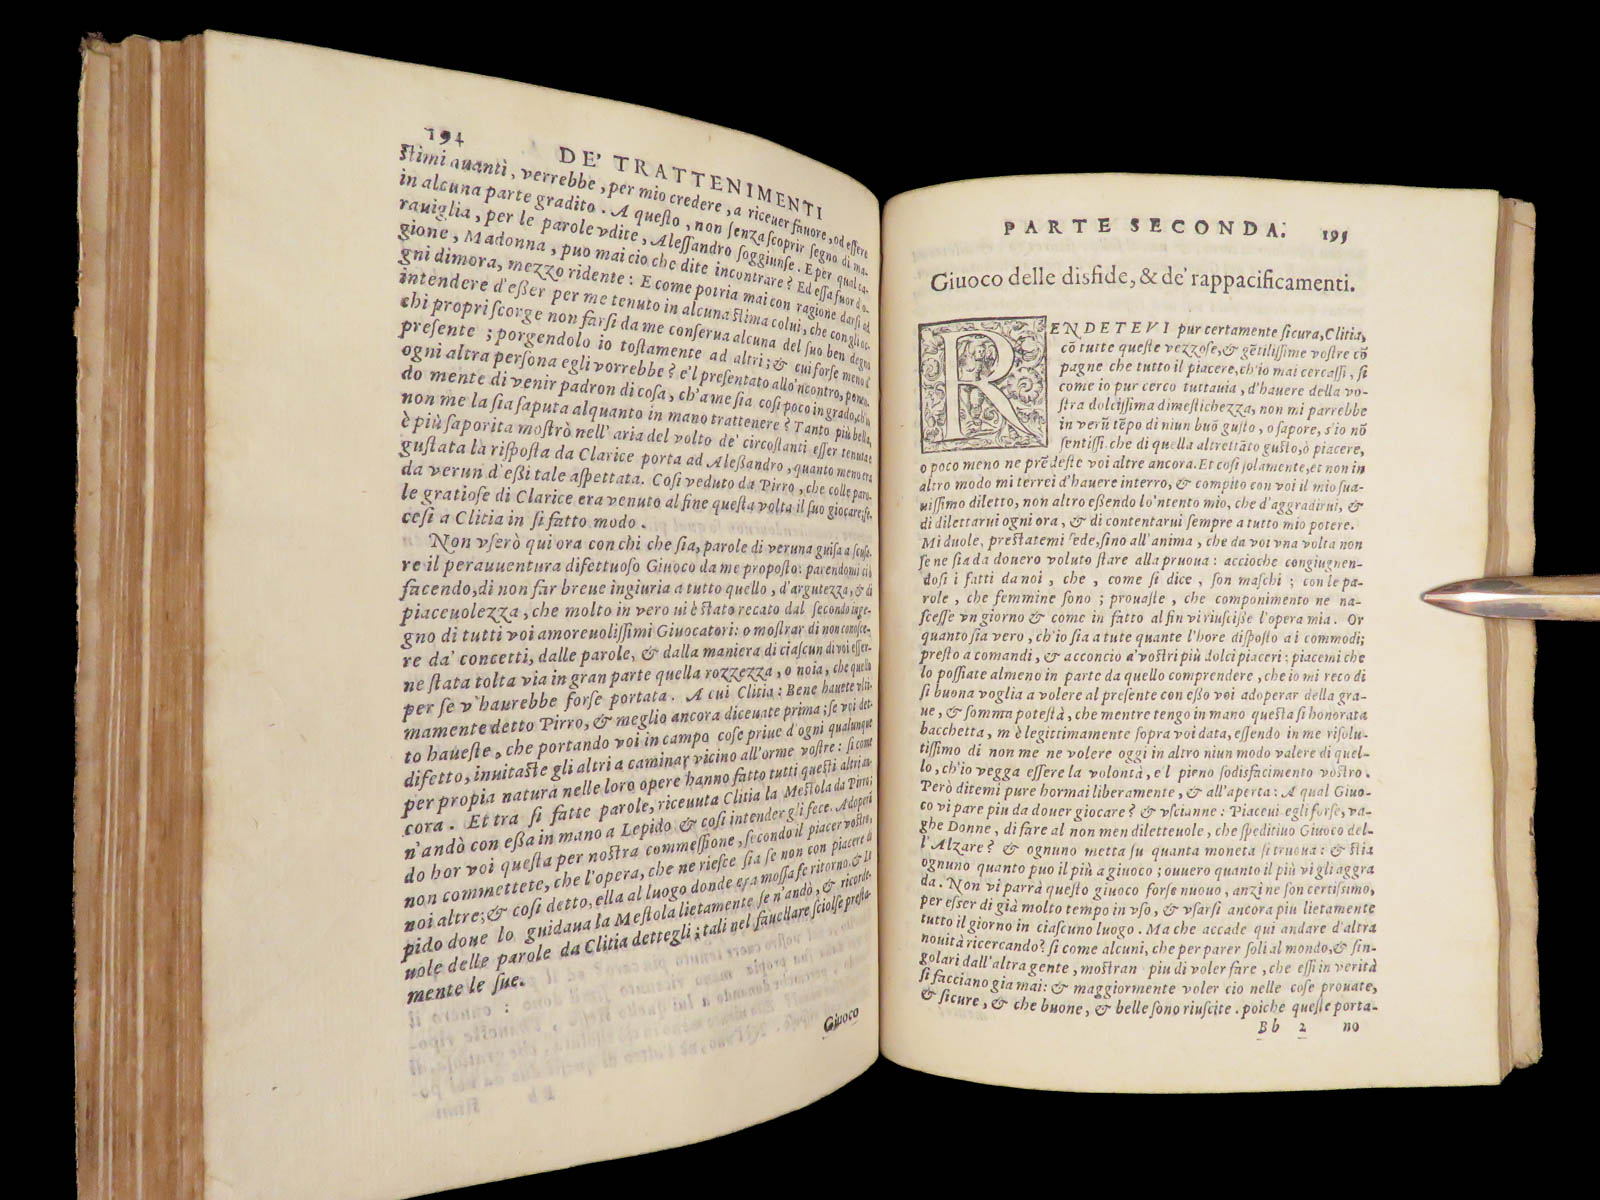 194
DE' TRATTENIMENTI
ſtimi auanti, verrebbe, per mio credere, a riceuer fauore, od eſſere
in alcuna parte gradito. A queſto, non ſenza ſcoprir ſegno di ma-
rauiglia, per le parole vdite, Aleſſandro ſoggiunſe. E per qual ca-
gione, Madonna, puo mai cio che dite incontrare? Ed eſſa fuor d'o-
gni dimora, mezzo ridente: E come potria mai con ragione darſi ad
intendere d'eßer per me tenuto in alcuna ſtima colui, che con gli oc-
chi propri ſcorge non farſi da me conſerua alcuna del ſuo ben degno
preſente; porgendolo io toſtamente ad altri; & cui forſe meno d'
ogni altra perſona egli vorrebbe? e'l preſentato allo'ncontro,
do mente di venir padron di coſa, ch'a me ſia coſi poco in grado, ch'io
non me la ſia ſaputa alquanto in mano trattenere? Tanto più bella,
è più ſaporita moſtrò nell'aria del volto de' circoſtanti eſſer tenuta e
guſtata la riſpoſta da Clarice porta ad Aleßandro, quanto meno era
da verun d'eßi tale aſpettata. Coſi veduto da Pirro, che colle paro-
le gratioſe di Clarice era venuto al fine queſta volta il ſuo giocare; fe-
ceſi a Clitia in ſi fatto modo.
Non vſerò qui ora con chi che ſia, parole di veruna guiſa a ſcuſa-
re il perauuentura difettuoſo Giuoco da me propoſto: parendomi ciò
facendo, di non far breue ingiuria a tutto quello, d'argutezza, & di
piaceuolezza, che molto in vero ui è ſtato recato dal ſecondo inge-
gno di tutti voi amoreuoliſſimi Giuocatori: o moſtrar di non conoſce-
re da' concetti, dalle parole, & dalla maniera di ciaſcun di voi eſſer-
ne ſtata tolta via in gran parte quella rozzezza, o noia, che quello
per ſe v'haurebbe forſe portata. A cui Clitia: Bene hauete vlti-
mamente detto Pirro, & meglio ancora diceuate prima; ſe voi det-
to haueſte, che portando voi in campo coſe priue d'ogni qualunque
difetto, inuitaſte gli altri a caminar vicino all'orme voſtre: ſi come
per propia natura nelle loro opere hanno fatto tutti queſti altri an-
cora. Et tra ſi fatte parole, riceuuta Clitia la Meſtola da Pirro;
n'andò con eßa in mano a Lepido & coſi intender gli fece. Adoperi
do hor voi queſta per noſtra commeſſione, ſecondo il piacer voſtro,
non commettete, che l'opera, che ne rieſce ſia ſe non con piacere di
noi altre; & coſi detto, ella al luogo donde era moſſa fe ritorno. & Le
pido doue lo guidaua la Meſtola lietamente ſe n'andò, & ricorde-
uole delle parole da Clitia dettegli; tali nel fauellare ſciolſe preſta-
mente le ſue.
Giuoco
PARTE SECONDA. 195
Giuoco delle disfide, & de' rappacificamenti.
RENDETEVI pur certamente ſicura, Clitia,
cō tutte queſte vezzoſe, & gētiliſſime voſtre cō
pagne che tutto il piacere, ch'io mai cercaſſi, ſi
come io pur cerco tuttauia, d'hauere della vo-
ſtra dolciſſima dimeſtichezza, non mi parrebbe
in verū tēpo di niun buō guſto, o ſapore, s'io nō
ſentiſſi che di quella altrettāto guſto, ò piacere,
o poco meno ne prēdeſte voi altre ancora. Et coſi ſolamente, et non in
altro modo mi terrei d'hauere interro, & compito con voi il mio ſua-
uiſſimo diletto, non altro eßendo lo'ntento mio, che d'aggradirui, &
di dilettarui ogni ora, & di contentarui ſempre a tutto mio potere.
Mi duole, preſtatemi fede, ſino all'anima, che da voi vna volta non
ſe ne ſia da douero voluto ſtare alla pruoua: accioche congiugnen-
doſi i fatti da noi, che, come ſi dice, ſon maſchi; con le pa-
role, che femmine ſono; prouaſte, che componimento ne na-
ſceſſe vn giorno & come in fatto al fin vi riuſciße l'opera mia. Or
quanto ſia vero, ch'io ſia a tute quante l'hore diſpoſto a i commodi;
preſto a comandi, & acconcio a' voſtri più dolci piaceri: piacemi che
lo poſſiate almeno in parte da quello comprendere, che io mi reco di
ſi buona voglia a volere al preſente con eßo voi adoperar della gra-
ue, & ſomma poteſtà, che mentre tengo in mano queſta ſi honorata
bacchetta, m'è legittimamente ſopra voi data, eſſendo in me riſolu-
tiſſimo di non me ne volere oggi in altro niun modo valere di quel-
lo, ch'io vegga eſſere la volontà, e'l pieno ſodisfacimento voſtro.
Però ditemi pure hormai liberamente, & all'aperta: A qual Giuo-
co vi pare piu da douer giocare? & vſcianne: Piaceui egli forſe, va-
ghe Donne, di fare al non men diletteuole, che ſpeditiuo Giuoco del-
l'Alzare? & ognuno metta ſu quanta moneta ſi truoua: & ſtia
ognuno quanto puo il più a giuoco; ouuero quanto il più vi gli aggra
da. Non vi parrà queſto giuoco forſe nuouo, anzi ne ſon certiſſimo,
per eſſer di già molto tempo in vſo, & vſarſi ancora piu lietamente
tutto il giorno in ciaſcuno luogo. Ma che accade qui andare d'altra
nouità ricercando? ſi come alcuni, che per parer ſoli al mondo, & ſin-
golari dall'altra gente, moſtran piu di voler fare, che eſſi in verità
ſi facciano gia mai: & maggiormente voler cio nelle coſe prouate,
& ſicure, & che buone, & belle ſono riuſcite. poiche queſte porta-
Bb 2 no